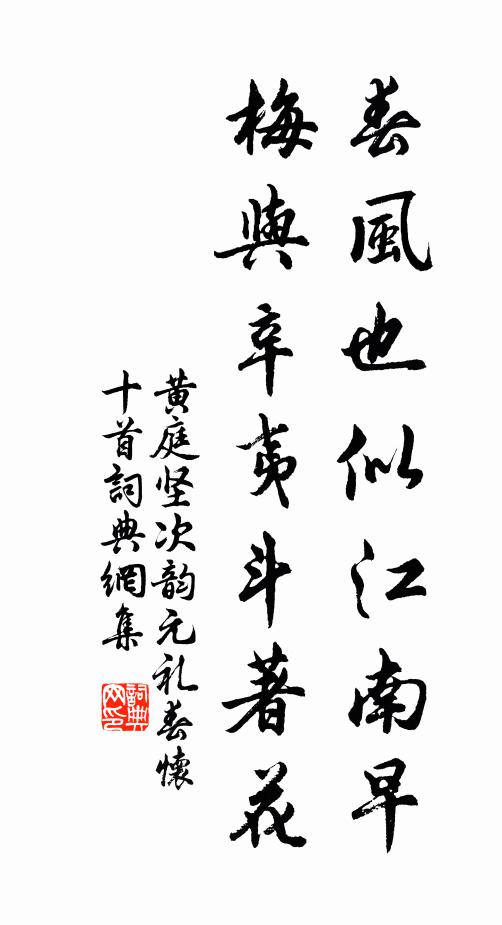 春風也似江南早
梅與辛夷斗著花
黄庭坚次韵元礼春懷
十首詞典網集
詞典
网印